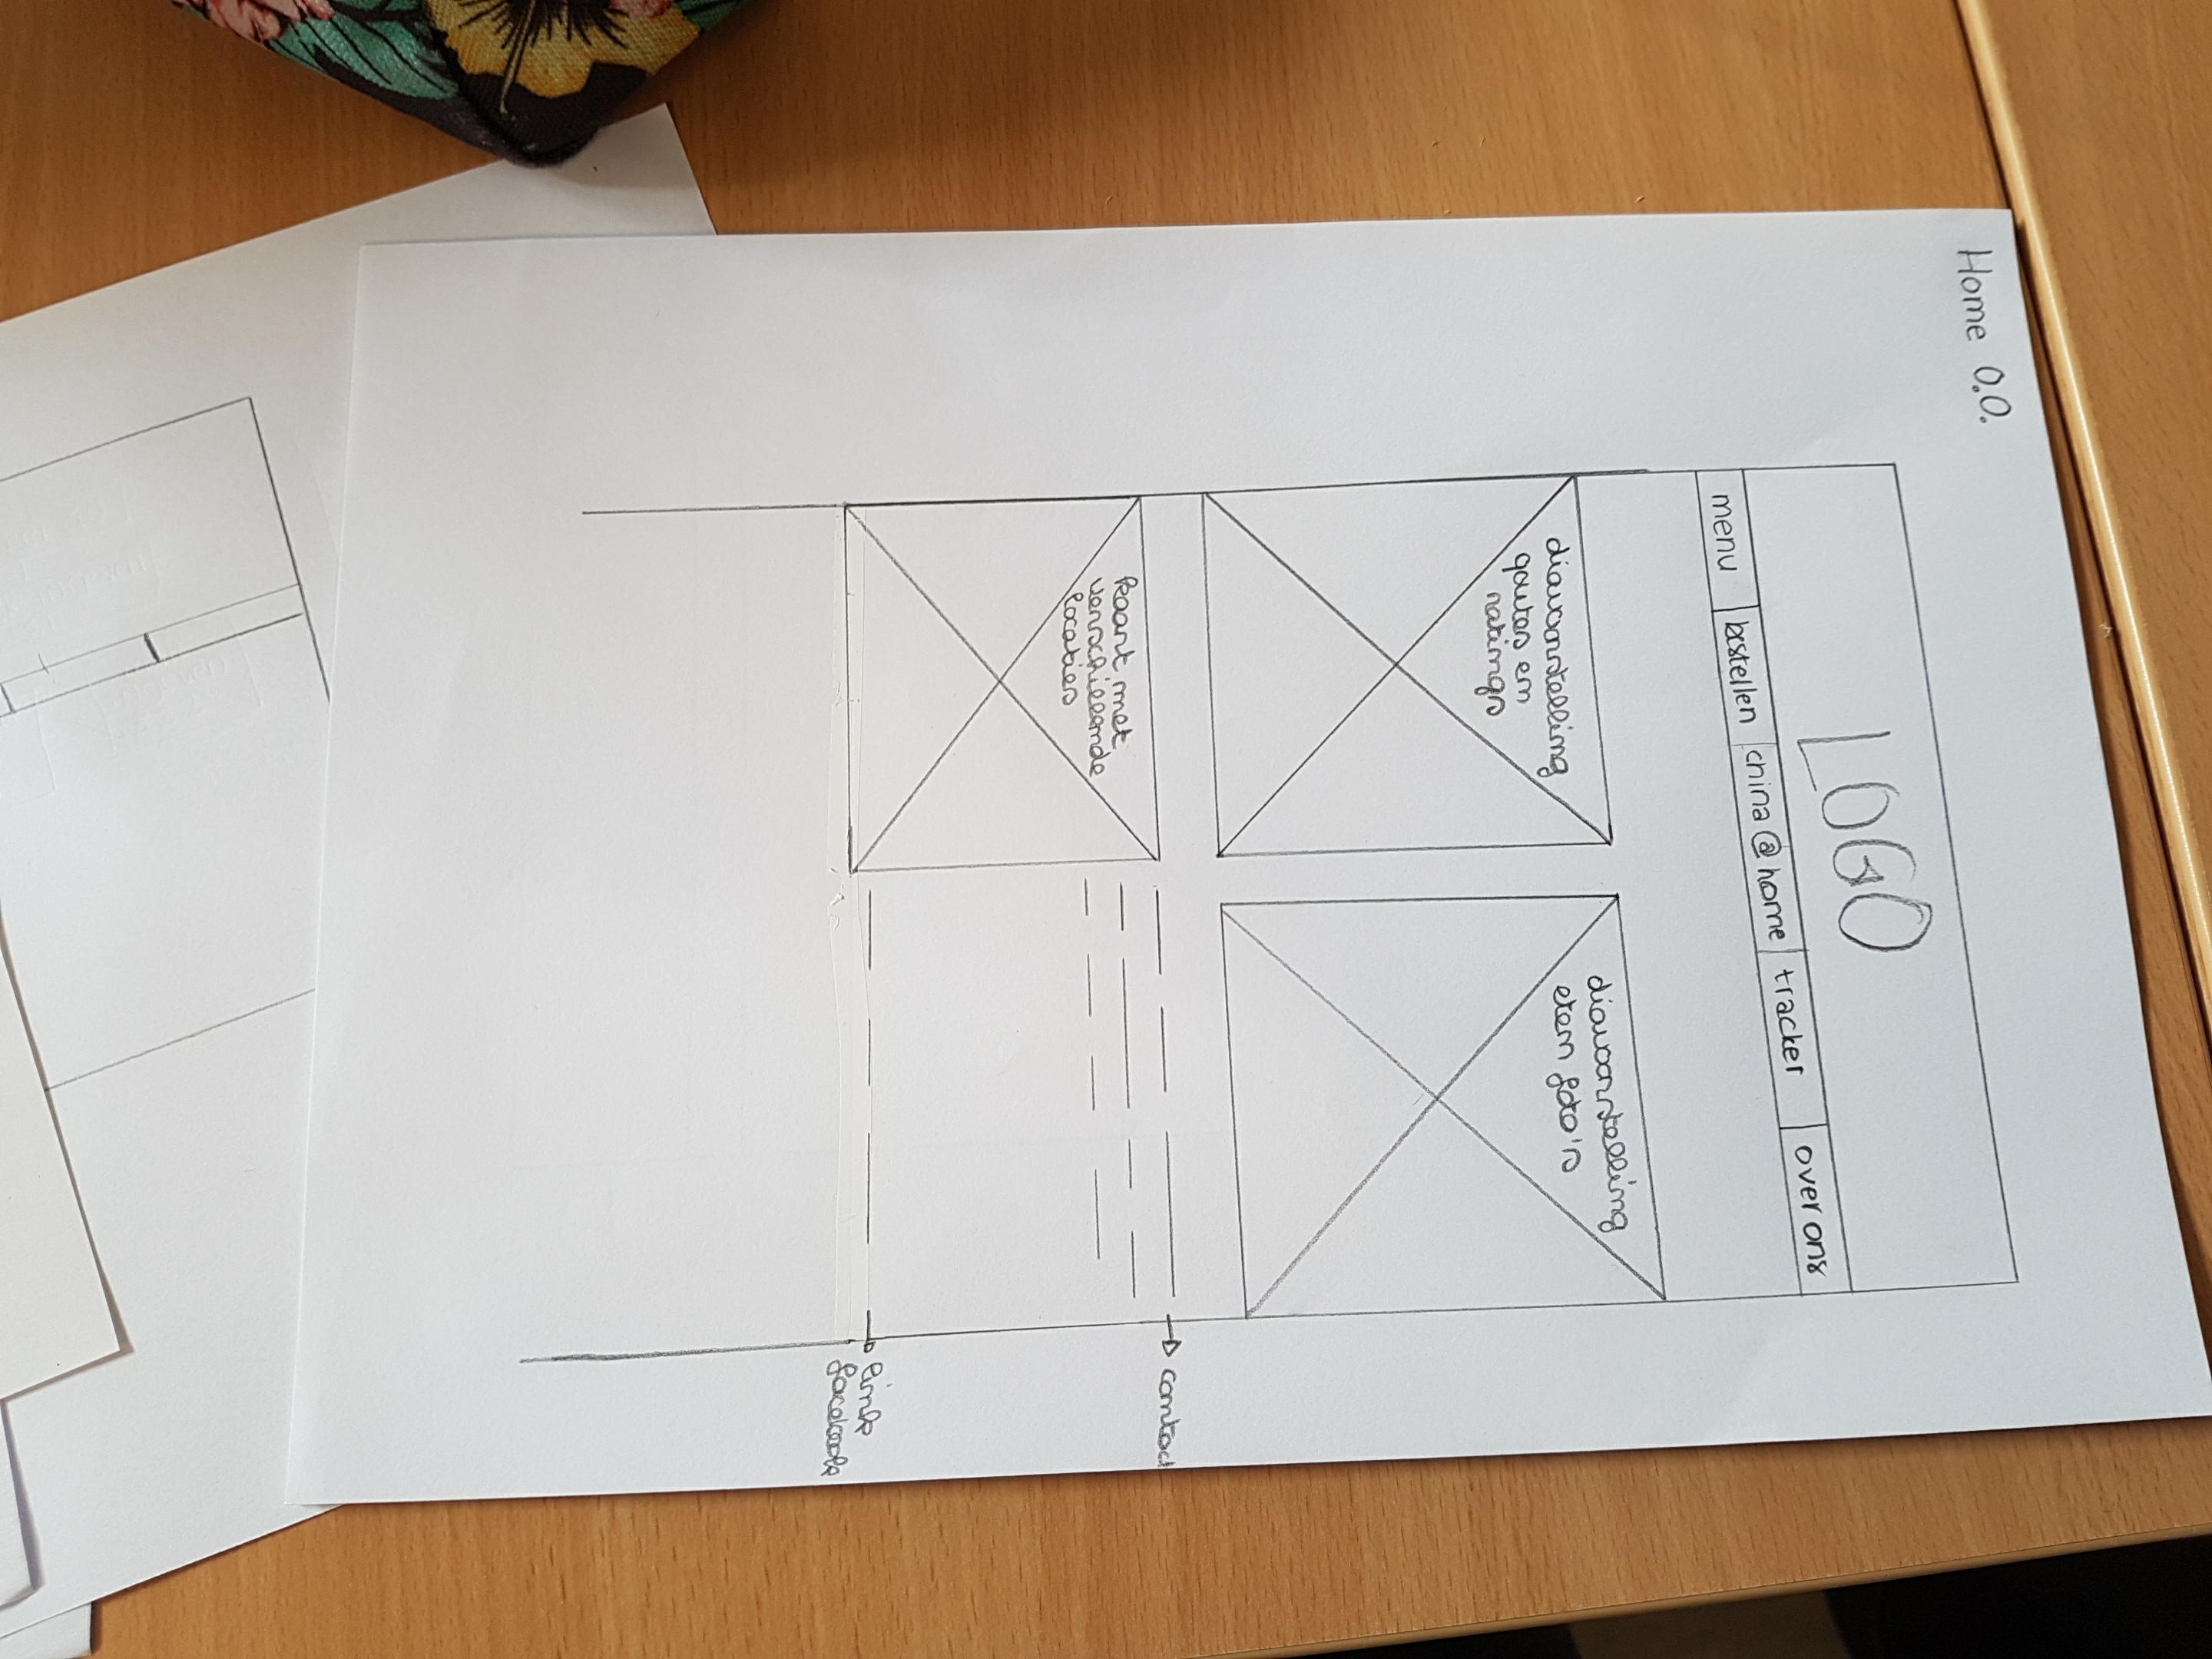 Home 0.0.
LOGO
menu
bestellen
china@home
tracker
over ons
diavoorstelling
quotes en
ratings
diavoorstelling
eten foto's
kaart met
verschillende
locaties
contact
link
facebook